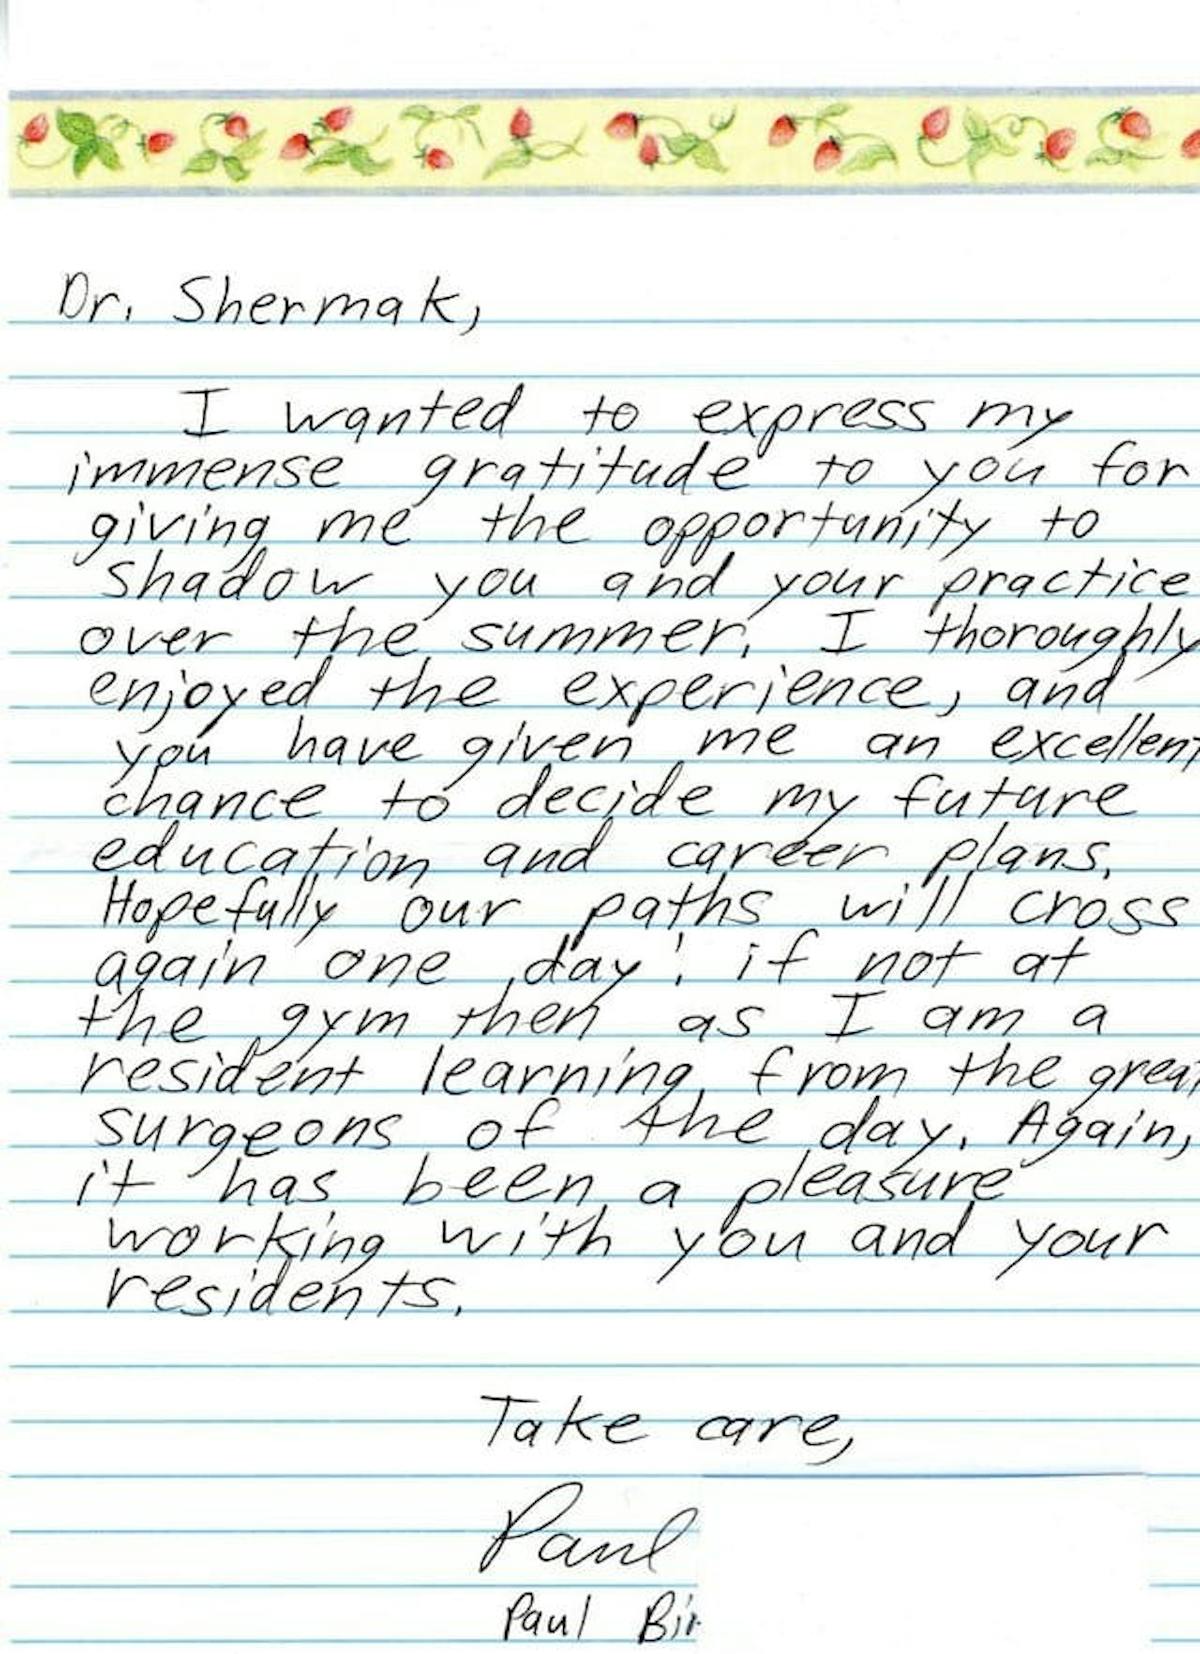 Dr. Shermak,
I wanted to express my
immense gratitude to you for
giving me the opportunity to
shadow you and your practice
over the summer. I thoroughly
enjoyed the experience, and
you have given me an excellent
chance to decide my future
education and career plans.
Hopefully our paths will cross
again one day; if not at
the gym then as I am a
resident learning from the great
surgeons of the day. Again,
it has been a pleasure
working with you and your
residents.
Take care,
Paul
Paul Bir